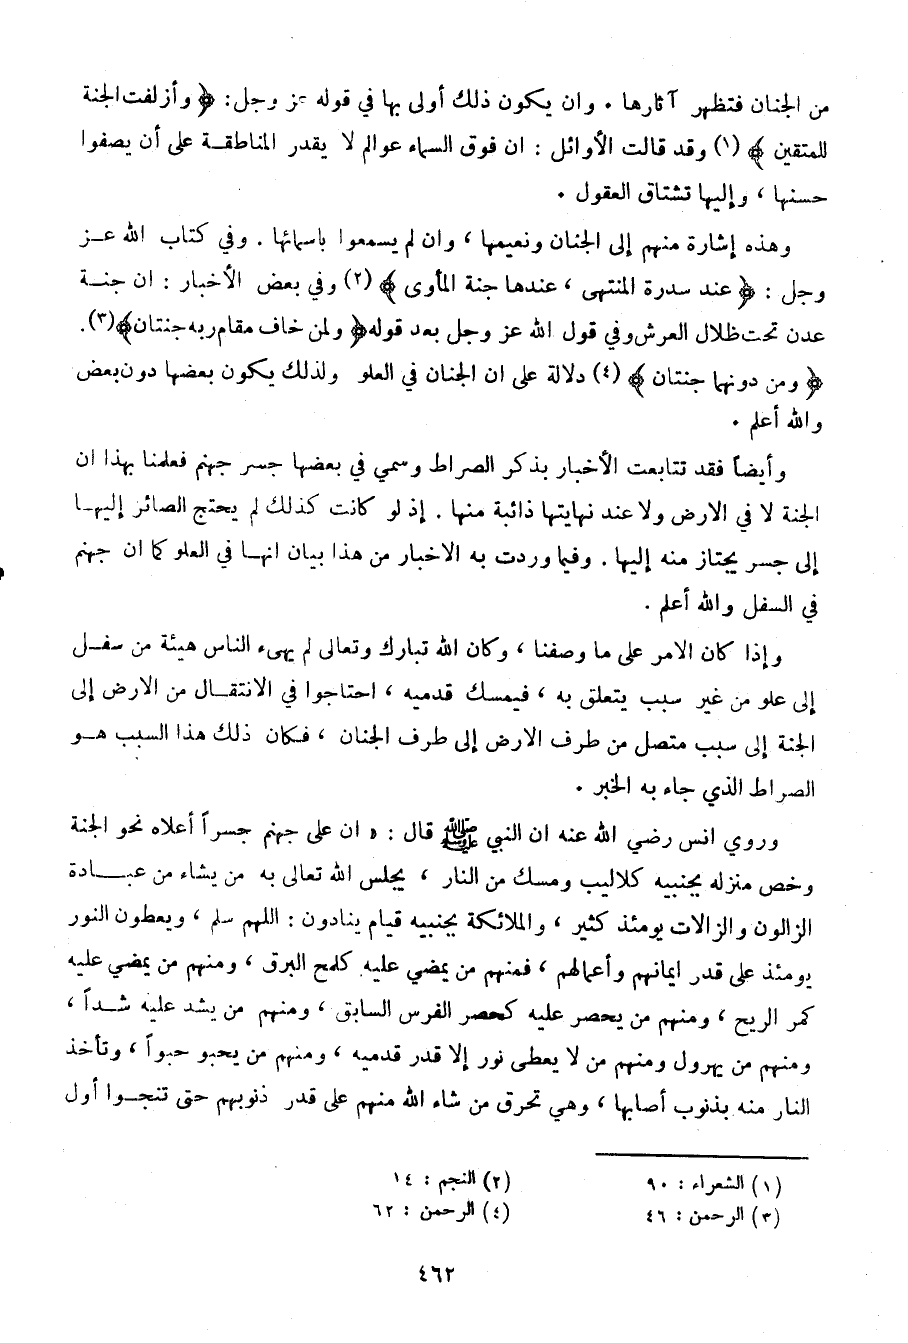 من الجنان فتظهر آثارها . وان يكون ذلك أولى بها في قوله عز وجل : ﴿ وأزلفت الجنة
للمتقين ﴾ (١) وقد قالت الأوائل : ان فوق السماء عوالم لا يقدر المناطقة على أن يصفوا
حسنها ، وإليها تشتاق العقول .
وهذه إشارة منهم إلى الجنان ونعيمها ، وان لم يسمعوا باسمائها . وفي كتاب الله عز
وجل : ﴿ عند سدرة المنتهى ، عندها جنة المأوى ﴾ (٢) وفي بعض الأخبار : ان جنة
عدن تحت ظلال العرش وفي قول الله عز وجل بعد قوله ﴿ ولمن خاف مقام ربه جنتان ﴾ (٣) .
﴿ ومن دونهما جنتان ﴾ (٤) دلالة على ان الجنان في العلو ولذلك يكون بعضها دون بعض
والله أعلم .
وأيضاً فقد تتابعت الأخبار بذكر الصراط وسمي في بعضها جسر جهنم فعلمنا بهذا ان
الجنة لا في الارض ولا عند نهايتها ذائبة منها . إذ لو كانت كذلك لم يحتج الصائر إليها
إلى جسر يجتاز منه إليها . وفيما وردت به الاخبار من هذا بيان انها في العلو كما ان جهنم
في السفل والله أعلم .
وإذا كان الامر على ما وصفنا ، وكان الله تبارك وتعالى لم يهيء الناس هيئة من سفل
إلى علو من غير سبب يتعلق به ، فيمسك قدميه ، احتاجوا في الانتقال من الارض إلى
الجنة إلى سبب متصل من طرف الارض إلى طرف الجنان ، فكان ذلك هذا السبب هو
الصراط الذي جاء به الخبر .
وروي انس رضي الله عنه ان النبي ﷺ قال : « ان على جهنم جسراً أعلاه نحو الجنة
وخص منزله بجنبيه كلاليب ومسك من النار ، يجلس الله تعالى به من يشاء من عبادة
الزالون والزالات يومئذ كثير ، والملائكة بجنبيه قيام ينادون : اللهم سلم ، ويعطون النور
يومئذ على قدر ايمانهم وأعمالهم ، فمنهم من يمضي عليه كلمح البرق ، ومنهم من يمضي عليه
كمر الريح ، ومنهم من يحصر عليه كحصر الفرس السابق ، ومنهم من يشد عليه شداً ،
ومنهم من يهرول ومنهم من لا يعطى نور إلا قدر قدميه ، ومنهم من يحبو حبواً ، وتأخذ
النار منه بذنوب أصابها ، وهي تحرق من شاء الله منهم على قدر ذنوبهم حتى تنجوا أول
(١) الشعراء : ٩٠
(٢) النجم : ١٤
(٣) الرحمن : ٤٦
(٤) الرحمن : ٦٢
٤٦٢